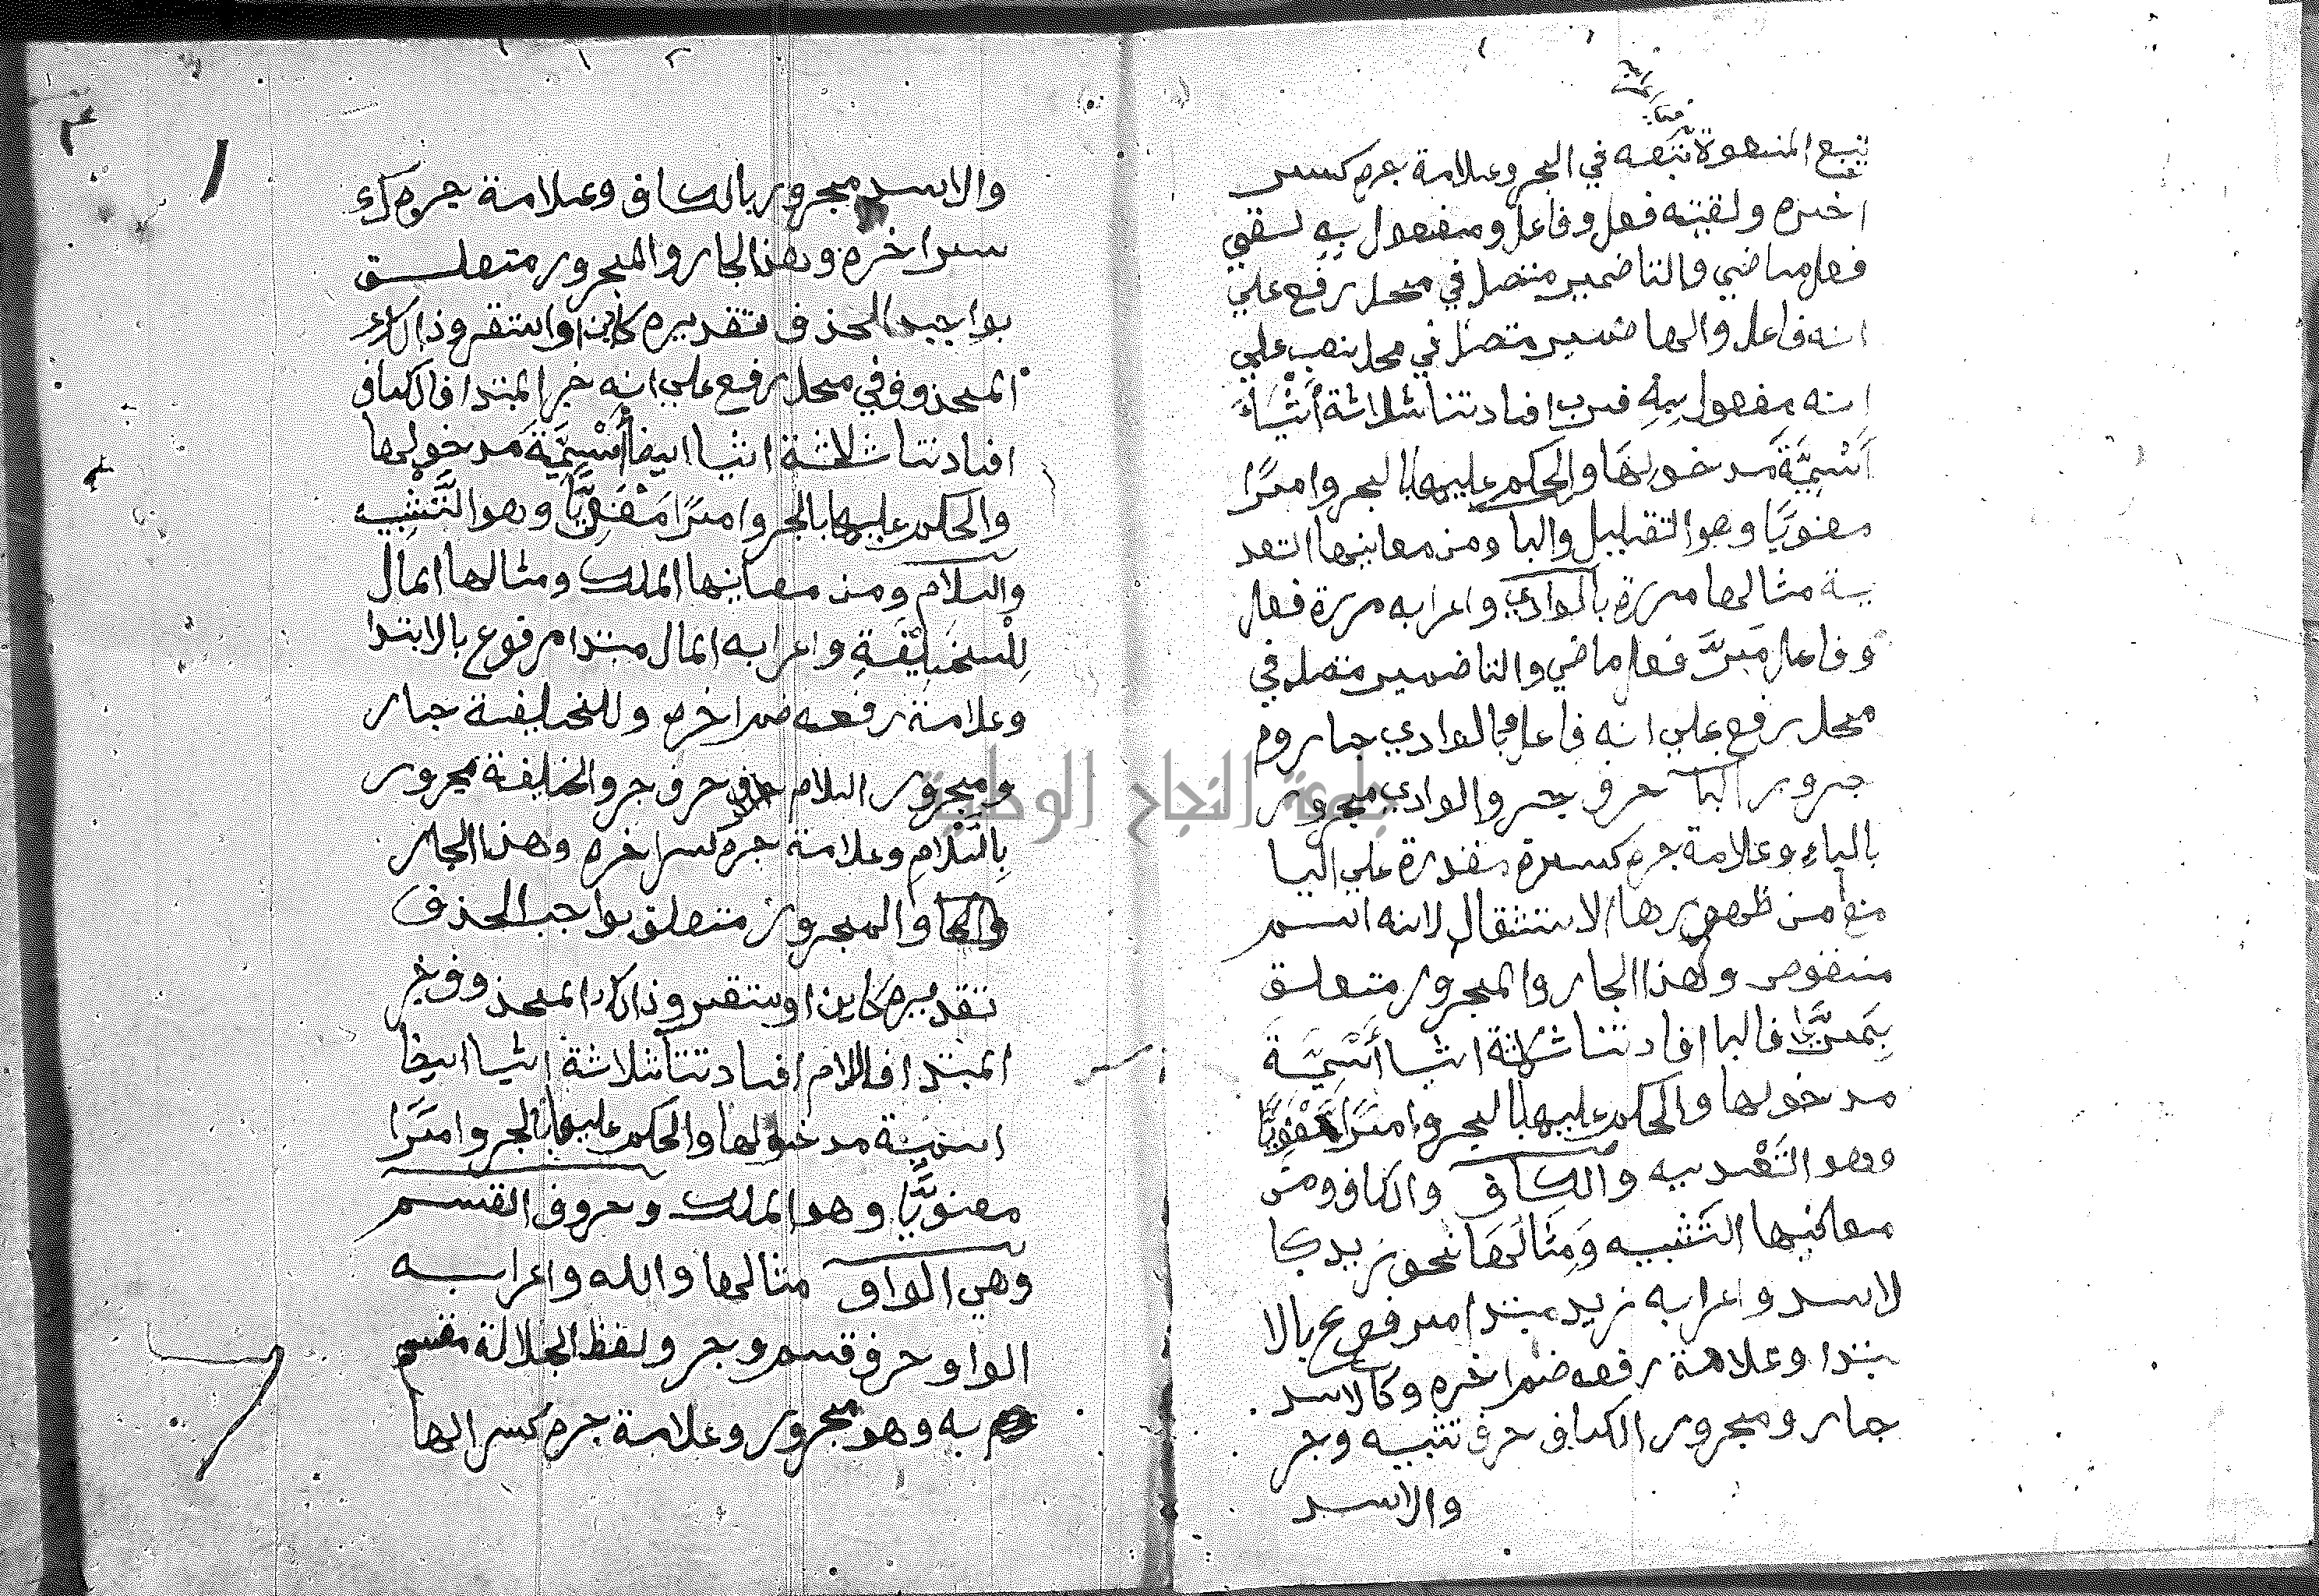 تبع المنعوة تبعه في الجر وعلامة جره كسر
اخره ولقيته فعل وفاعل ومفعول به لقي
فعل ماضي والتا ضمير متصل في محل رفع علي
انه فاعل والها ضمير متصل في محل نصب علي
انه مفعول به فرب افادتنا ثلاثة أشياءً
أسْمِيَّة مدخولهَا والحكم عليها بالجر وامرًا
معنويًا وهو التقليل والبا ومن معانيها التعد
ية مثالها مررة بالوادي واعرابه مررة فعل
وفاعل مَرَّ فعل ماضي والتا ضمير متصل في
محل رفع علي انه فاعل وبالوادي جار وم
جرور البا حرف جر والوادي مجرور
بالباءِ وعلامة جره كسرة مقدرة علي اليا
منع من ظهورها الاستثقال لانه اسم
منقوص وهذا الجار والمجرور متعلق
بِمَرَّ فالبا افادتنا ثلاثة اشيا أسْمِيَّة
مدخولها والحكم عليها بالجر وامرًا معْنَوِيًّا
وهو التَعْديه والكاف والكاف ومن
معانيها التَشْبيه وَمِثَالهَا نحو زيد كا
لاسد واعرابه زيد مبتدا مرفوع بالا
بتدا وعلامة رفعه ضم اخره وكالاسد
جار ومجرور الكاف حرف تشبيه وجر
والاسد
والاسد مجرور بالكاف وعلامة جره ك
سر اخره وهذا الجار والمجرور متعلق
بواجب الحذف تقديره كاين او استقر وذالك
المحذوف في محل رفع علي انه خبر المبتدا فالكاف
افادتنا ثلاثة اشيا ايضا أسْمِيَّة مدخولها
والحكم عليها بالجر وامرًا مَعْنَوِيًّا وهو التَّشْبِيه
واللام ومن معانيها الملك ومثالها المال
لِلْخَلِيْفَةِ واعرابه المال مبتدا مرفوع بالابتدا
وعلامة رفعه ضم اخره وللخليفة جار
ومجرور اللام حرف جر والخليفة مجرور
بِاللَّامِ وعلامة جره كسر اخره وهذا الجار
والمجرور متعلق بواجب الحذف
تقديره كاين او ستقر وذالك المحذوف خبر
المبتدا فاللام افادتنا ثلاثة اشيا ايضا
اسمية مدخولها والحكم عليها بالجر وامرًا
معنويًّا وهو الملك وحروف القسم
وهي الواو مثالها والله واعرابه
الواو حرف قسم وجر ولفظ الجلالة مقسم
به وهو مجرور وعلامة جره كسر الها
جامعة النجاح الوطنية